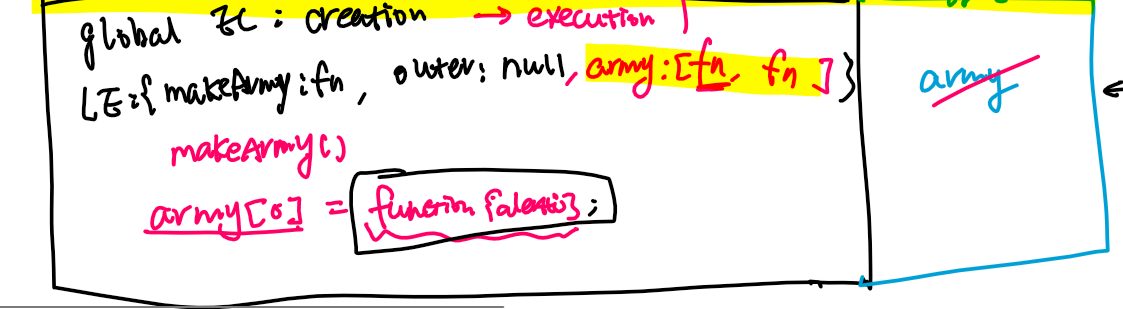 global EC : creation → execution
LE:{ makeArmy: fn, outer: null, army: [fn, fn ] }
makeArmy()
army[0] = function {alert(i)};
army